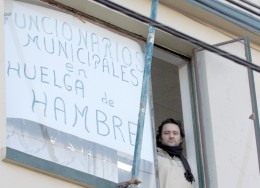 FUNCIONARIOS
MUNICIPALES
en
HUELGA de
HAMBRE